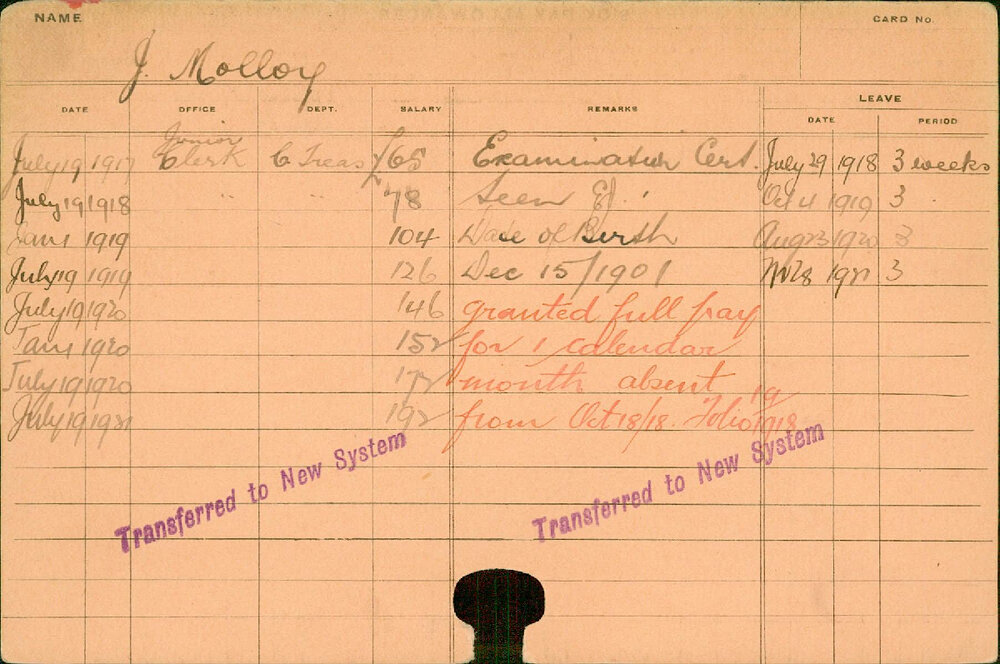 NAME
CARD No.
J. Molloy
DATE OFFICE DEPT. SALARY REMARKS LEAVE
DATE PERIOD
Junior
July 19 1917 Clerk C Treas £65 Examination Cert. July 29 1918 3 weeks
July 19 1918 " " " 78 Seen Oct 4 1919 3 "
Jan 1 1919 104 Date of Birth Aug 23 1920 3
July 19 1919 126 Dec 15/1901 1921 3
July 19 1920 146 granted full pay
Jan 1 1920 152 for 1 calendar
July 19 1920 172 month absent 19
July 19 1921 192 from Oct 18/18. Folio 1918
Transferred to New System
Transferred to New System